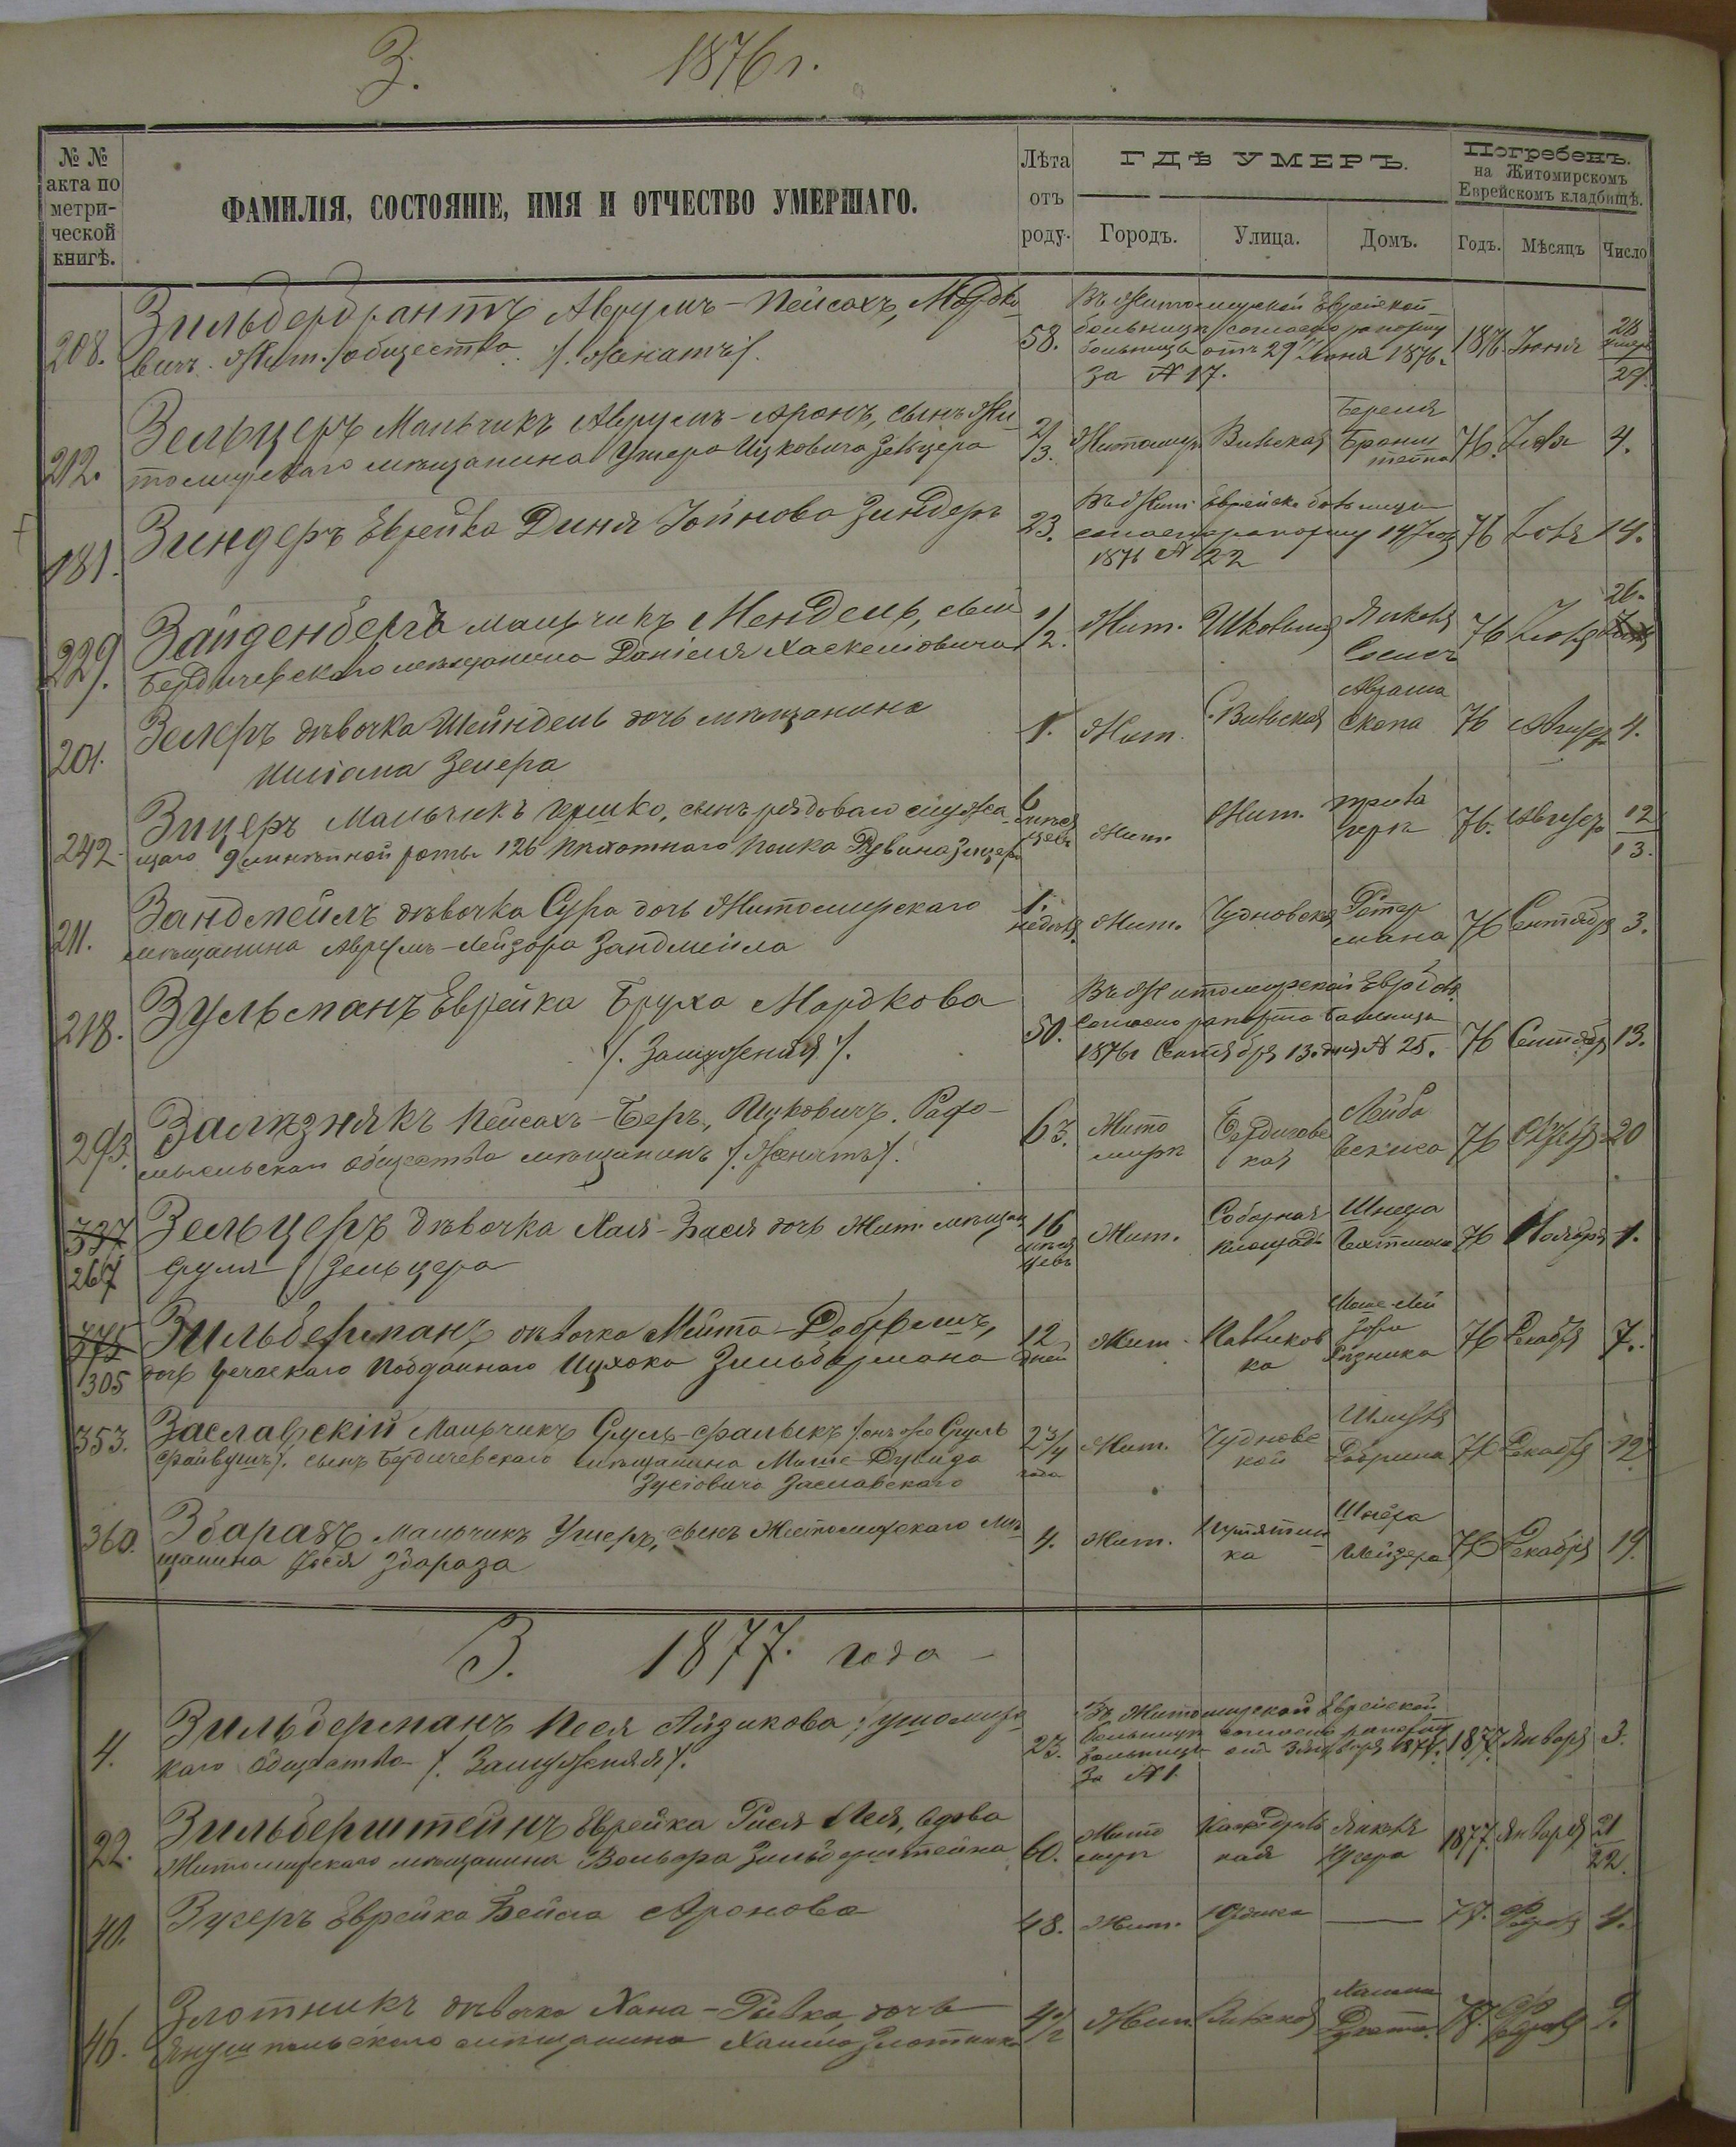 З. 1876 г.
№ №
акта по
метри-
ческой
книгѣ.
ФАМИЛІЯ, СОСТОЯНІЕ, ИМЯ И ОТЧЕСТВО УМЕРШАГО.
Лѣта
отъ
роду.
ГДѢ УМЕРЪ.
Городъ. Улица. Домъ.
Погребенъ.
на Житомирскомъ
Еврейскомъ кладбищѣ.
Годъ. Мѣсяцъ Число
208. Зильбербрантъ Аврумъ-Пейсахъ, Мордко-
вичъ. Жит. общества. /. Женатъ /.
58.
Въ Житомирской Еврейской
больницѣ согласно рапорту
больницы отъ 29 Іюня 1876 г.
за № 17.
1876. Іюня 28 29.
212. Зельцеръ Мальчикъ Аврумъ-Аронъ, сынъ Жи-
томирскаго мѣщанина Ушера Ицковича Зельцера
2/3. Житомир Вильская Береля
Бронш
тейна
76. Іюля 4.
181. Зиндеръ Еврейка Диня Іойнова Зиндеръ
23.
Въ Жит. Еврейск. больницѣ
согласно рапорту 14 Іюля
1876 № 22
76 Іюля 14.
229. Зайденбергъ мальчикъ Мендель, сын
Бердичевскаго мѣщанина Даніеля Хаскеліовича
1/2. Жит. Янкеля
76 26.
201. Зелеръ дѣвочка Шейндель дочь мѣщанина
Зелера
1. Жит. С. Вильская Аврама
Скопа
76 Август 4.
242. Зицеръ Мальчикъ Гершко, сынъ рядоваго служа-
щаго 9 линейной роты 126 пѣхотнаго полка Рувина Зицера
6
мѣся
цевъ
Жит. Жит. 76. Август 12
13.
211. Зандмейлъ дѣвочка Сура дочь Житомирскаго
мѣщанина Аврумъ-Лейзора Зандмейла
1.
недѣля. Жит. Чудновская Ретер
мана
76 Сентября 3.
218. Зульманъ Еврейка Бруха Мордкова
/. Замужняя /.
50.
Въ Житомирской Евр. бол.
согласно рапорта больницы
1876 г Сентября 13. дня № 25.
76 Сентябр 13.
293. Залѣзнякъ Пейсахъ-Беръ, Ицковичъ. Радо-
мысльскаго общества мѣщанинъ /. Женатъ /.
63. Жито
миръ
Бердичевс
кая
Лейба
76 20
337
267
Зельцеръ дѣвочка Хая-Бася дочь Жит. мѣщан
Сруля Зельцера
16
мѣся
цевъ
Жит. Соборная
площадь
Шнера
76 Ноября 1.
375
305
Зильберманъ дѣвочка Мейта-Добришъ,
дочь Турецкаго подданнаго Ицхока Зильбермана
12
дней
Жит. Павликов
ка
Моше-Лей
зора
Рѣзника
76 Декабря 7.
353. Заславскій Мальчикъ Сруль-Фалыкъ /. онъ же Сруль
Файвушъ /. сынъ Бердичевскаго мѣщанина Моше-Дувида
Зусіовича Заславскаго
2 3/4
года
Жит. Чудновс
кой
76 Декабря 12.
360. Збаразъ мальчикъ Ушеръ, сынъ Житомирскаго мѣ-
щанина Іося Збараза
4. Жит. Путятин
ка
Шнера
76 Декабря 19.
З. 1877. года
4. Зильберманъ Песя Айзикова, Ушомирс
каго общества /. Замужняя /.
23.
Въ Житомирской Еврейской
больницѣ согласно рапорту
больницы отъ 3 Января 1877.
за № 1.
1877. Января 3.
22. Зильберштейнъ Еврейка Рися Лея, вдова
Житомирскаго мѣщанина Вольфа Зильберштейна
60. Жито
миръ
Каѳедраль
ная
Янкеля
1877. Января 21
22.
40. Зусеръ Еврейка Бейла Аронова
48. Жит. Юдика — 77. Февраля 4.
46. Злотникъ дѣвочка Хана-Ривка, дочь
Янушпольскаго мѣщанина Хаима Злотника
4 1/2 Жит. Вильской Хаима
77. Февраля 9.